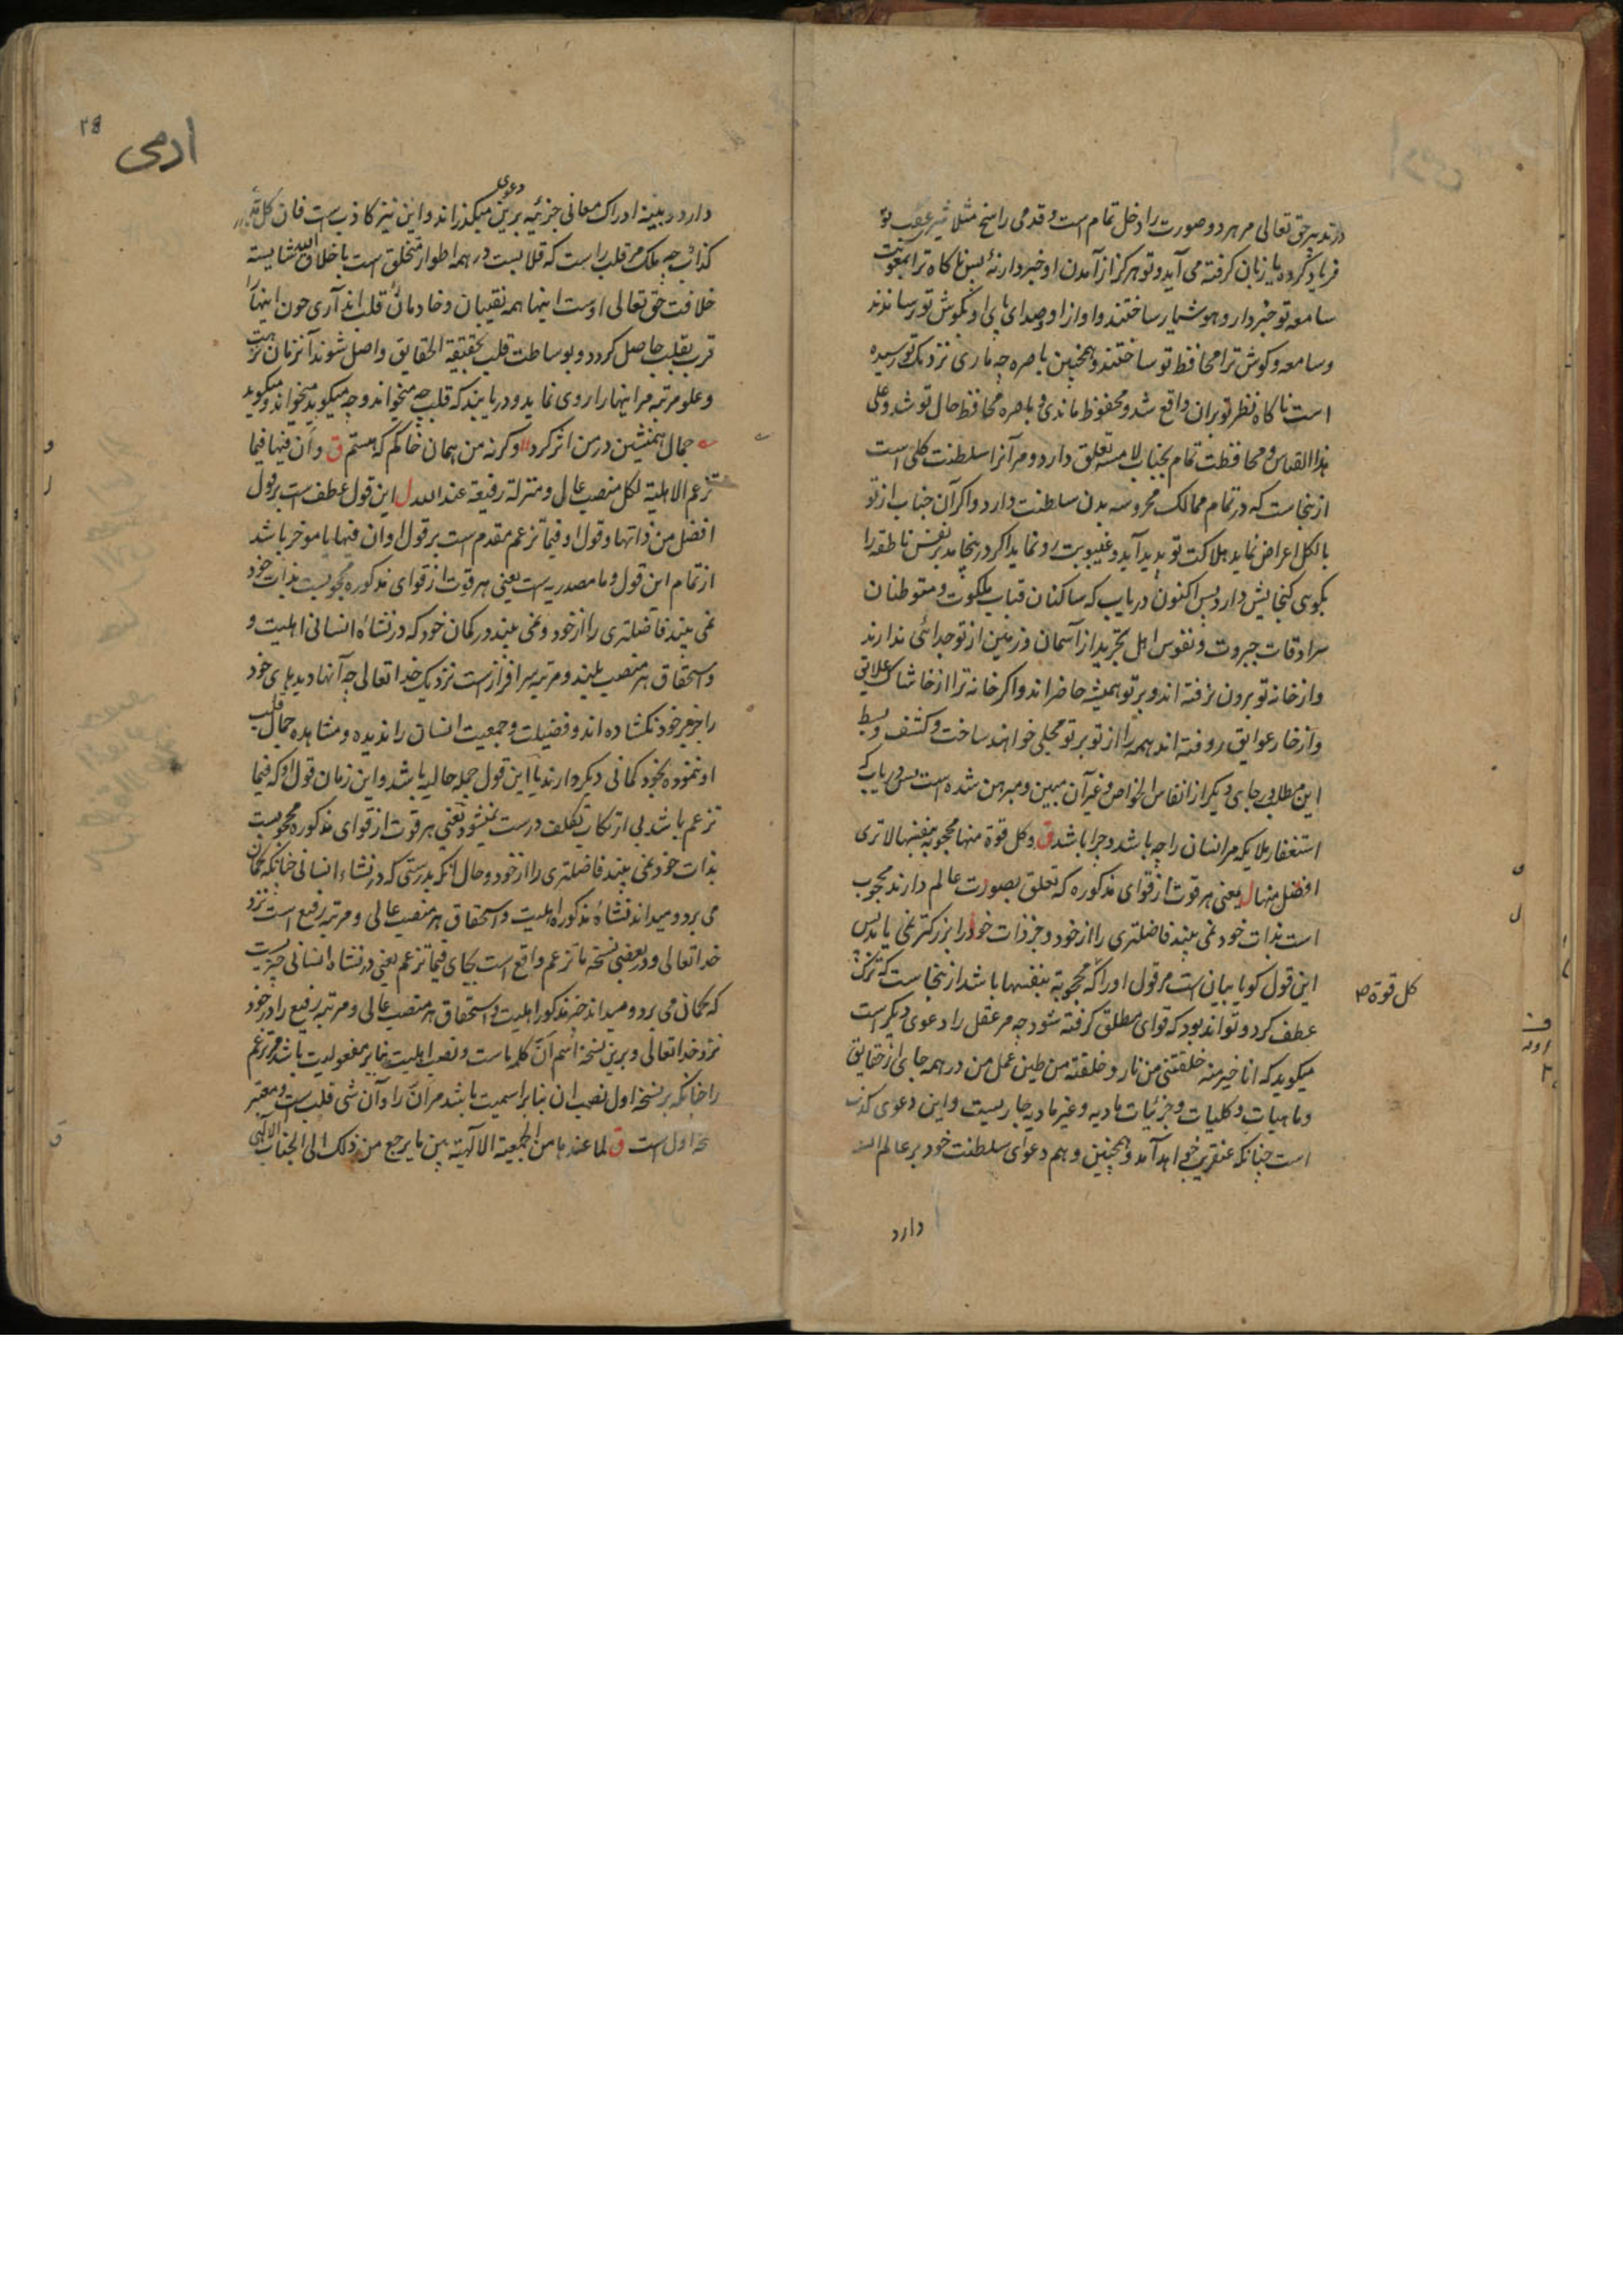 در تدبیر حق تعالی مر هر دو صورت را دخل تمام است و قدمی راسخ مثلا شیر عقب تو
فریاد کرده یا زبان کرفته می آید و تو هرکز از آمدن او خبردار نهٔ پس ناکاه ترا بمعونت
سامعه تو خبردار و هوشیار ساختند و اواز او و صدای پای او بکوش تو رسانذند
و سامعه و کوش ترا محافظ تو ساختند و همچنین باصره چه ماری نزدیک تو رسیده
است ناکاه نظر تو بران واقع شد و محفوظ ماندی و باصره محافظ حال تو شد و علی
هذا القیاس و محافظت تمام بجناب لامسه تعلق دارد و مر آنرا سلطنت کلی است
ازینجاست که در تمام ممالک محروسه بدن سلطنت دارد و اکر آن جناب از تو
بالکل اعراض نماید هلاکت تو پدید آید و غیبوبت رو نماید اکر در ینجا بر نفس ناطقه را
بکویی کنجایش دارد پس اکنون دریاب که ساکنان قباب ملکوت و متوطنان
سرادقات جبروت و نفوس اهل تجرید از آسمان و زمین از تو جدائی ندارند
و از خانه تو برون نرفته اند و بر تو همیشه حاضر اند و اکر خانه ترا از خاشاک علایق
و از خار عوایق روفته اند همه را از تو بر تو مجلی خواهند ساخت و کشف و بسط
این مطلب جای دیکر از انفاس الخواص و غیر آن مبین و مبرهن شده است پس دریاب که
استغفار ملایکه مر انسان را چه باشد و چرا باشد ق و کل قوة منها محجوبة بنفسها لا تری
افضل منها ل یعنی هر قوت از قوای مذکوره که تعلق بصورت عالم دارند محجوب
است بذات خود نمی بیند فاضلتری را از خود و جز ذات خود را بزرکتر نمی یابد پس
این قول کویا بیان است مر قول او را که محجوبة بنفسها باشد ازینجاست که ترک
کل قوة صح
عطف کرد و تواند بود که قوای مطلق کرفته شود چه مر عقل را دعوی دیکر است
میکوید که انا خیر منه خلقتنی من نار و خلقته من طین عمل من در همه جای از حقایق
و ماهیات و کلیات و جزئیات مادیه و غیر مادیه جاریست و این دعوی کذب
است چنانکه عنقریب خواهد آمد و همچنین وهم دعوای سلطنت خود بر عالم
دارد
ادمی
دارد و بینه ادراک معانی جزئیه برین دعوی میکذراند و این نیز کاذب است فان کل
کذاب چه ملک مر قلب راست که قلابست در همه اطوار متخلق است باخلاق الله شایسته
خلافت حق تعالی اوست اینها همه نقیبان و خادمان قلب اند آری چون اینها را
قرب بقلب حاصل کردد و بوساطت قلب بحقیقة الحقایق واصل شوند آنزمان
و علو مرتبه مر اینها را روی نماید و دریابند که قلب چه میخواند و چه میکوید
جمال همنشین در من اثر کرد و کرنه من همان خاکم که هستم ق و ان فیها فیما
تزعم الاهلیة لکل منصب عالی و منزلة رفیعة عند الله ل این قول عطف است بر قول
افضل من ذاتها و قول او فیما تزعم مقدم است بر قول او ان فیها یا موخر باشد
از تمام این قول و ما مصدریه است یعنی هر قوت از قوای مذکوره محجوبست بذات خود
نمی بیند فاضلتری را از خود و نمی بیند در کمان خود که در نشأه انسانی اهلیت و
و استحقاق هر منصب بلند و مرتبه سرافراز است نزدیک خدا تعالی چه آنها دیدهای خود
را جز بر خود نکشاده اند و فضیلت و جمعیت انسان را ندیده و مشاهده جمال قلب
او ننموده بخود کمانی دیکر دارند یا این قول جمله حالیه باشد و این زمان قول او که فیما
تزعم باشد بی ارتکاب تکلف درست نمیشود یعنی هر قوت از قوای مذکوره محجوبست
بذات خود نمی بیند فاضلتری را از خود و حال آنکه بدرستی که در نشاء انسانی چنانکه کمان
می برد و میداند نشأه مذکوره اهلیت و استحقاق هر منصب عالی و مرتبه رفیع است نزد
خدا تعالی و در بعضی نسخه ما تزعم واقع است بجای فیما تزعم یعنی در نشاه انسانی چیزیست
که کمان می برد و میداند چیز مذکور اهلیت و استحقاق هر منصب عالی و مرتبه رفیع را در خود
نزد خدا تعالی و برین نسخه اسم ان کلمه ما است و نصب اهلیت بنا بر مفعولیت باشد مر تزعم
را چنانکه بر نسخه اول نصب ان بنا بر اسمیت باشد مر ان را و آن شی قلب است و معتبر
نسخه اول است ق لما عندها من الجمعیة الالهیة بین ما یرجع من ذلک الی الجناب الالهی